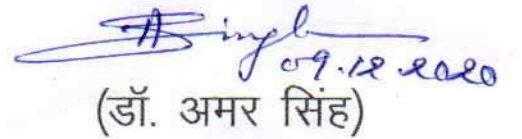 Singh
09.12.2020
(डॉ. अमर सिंह)